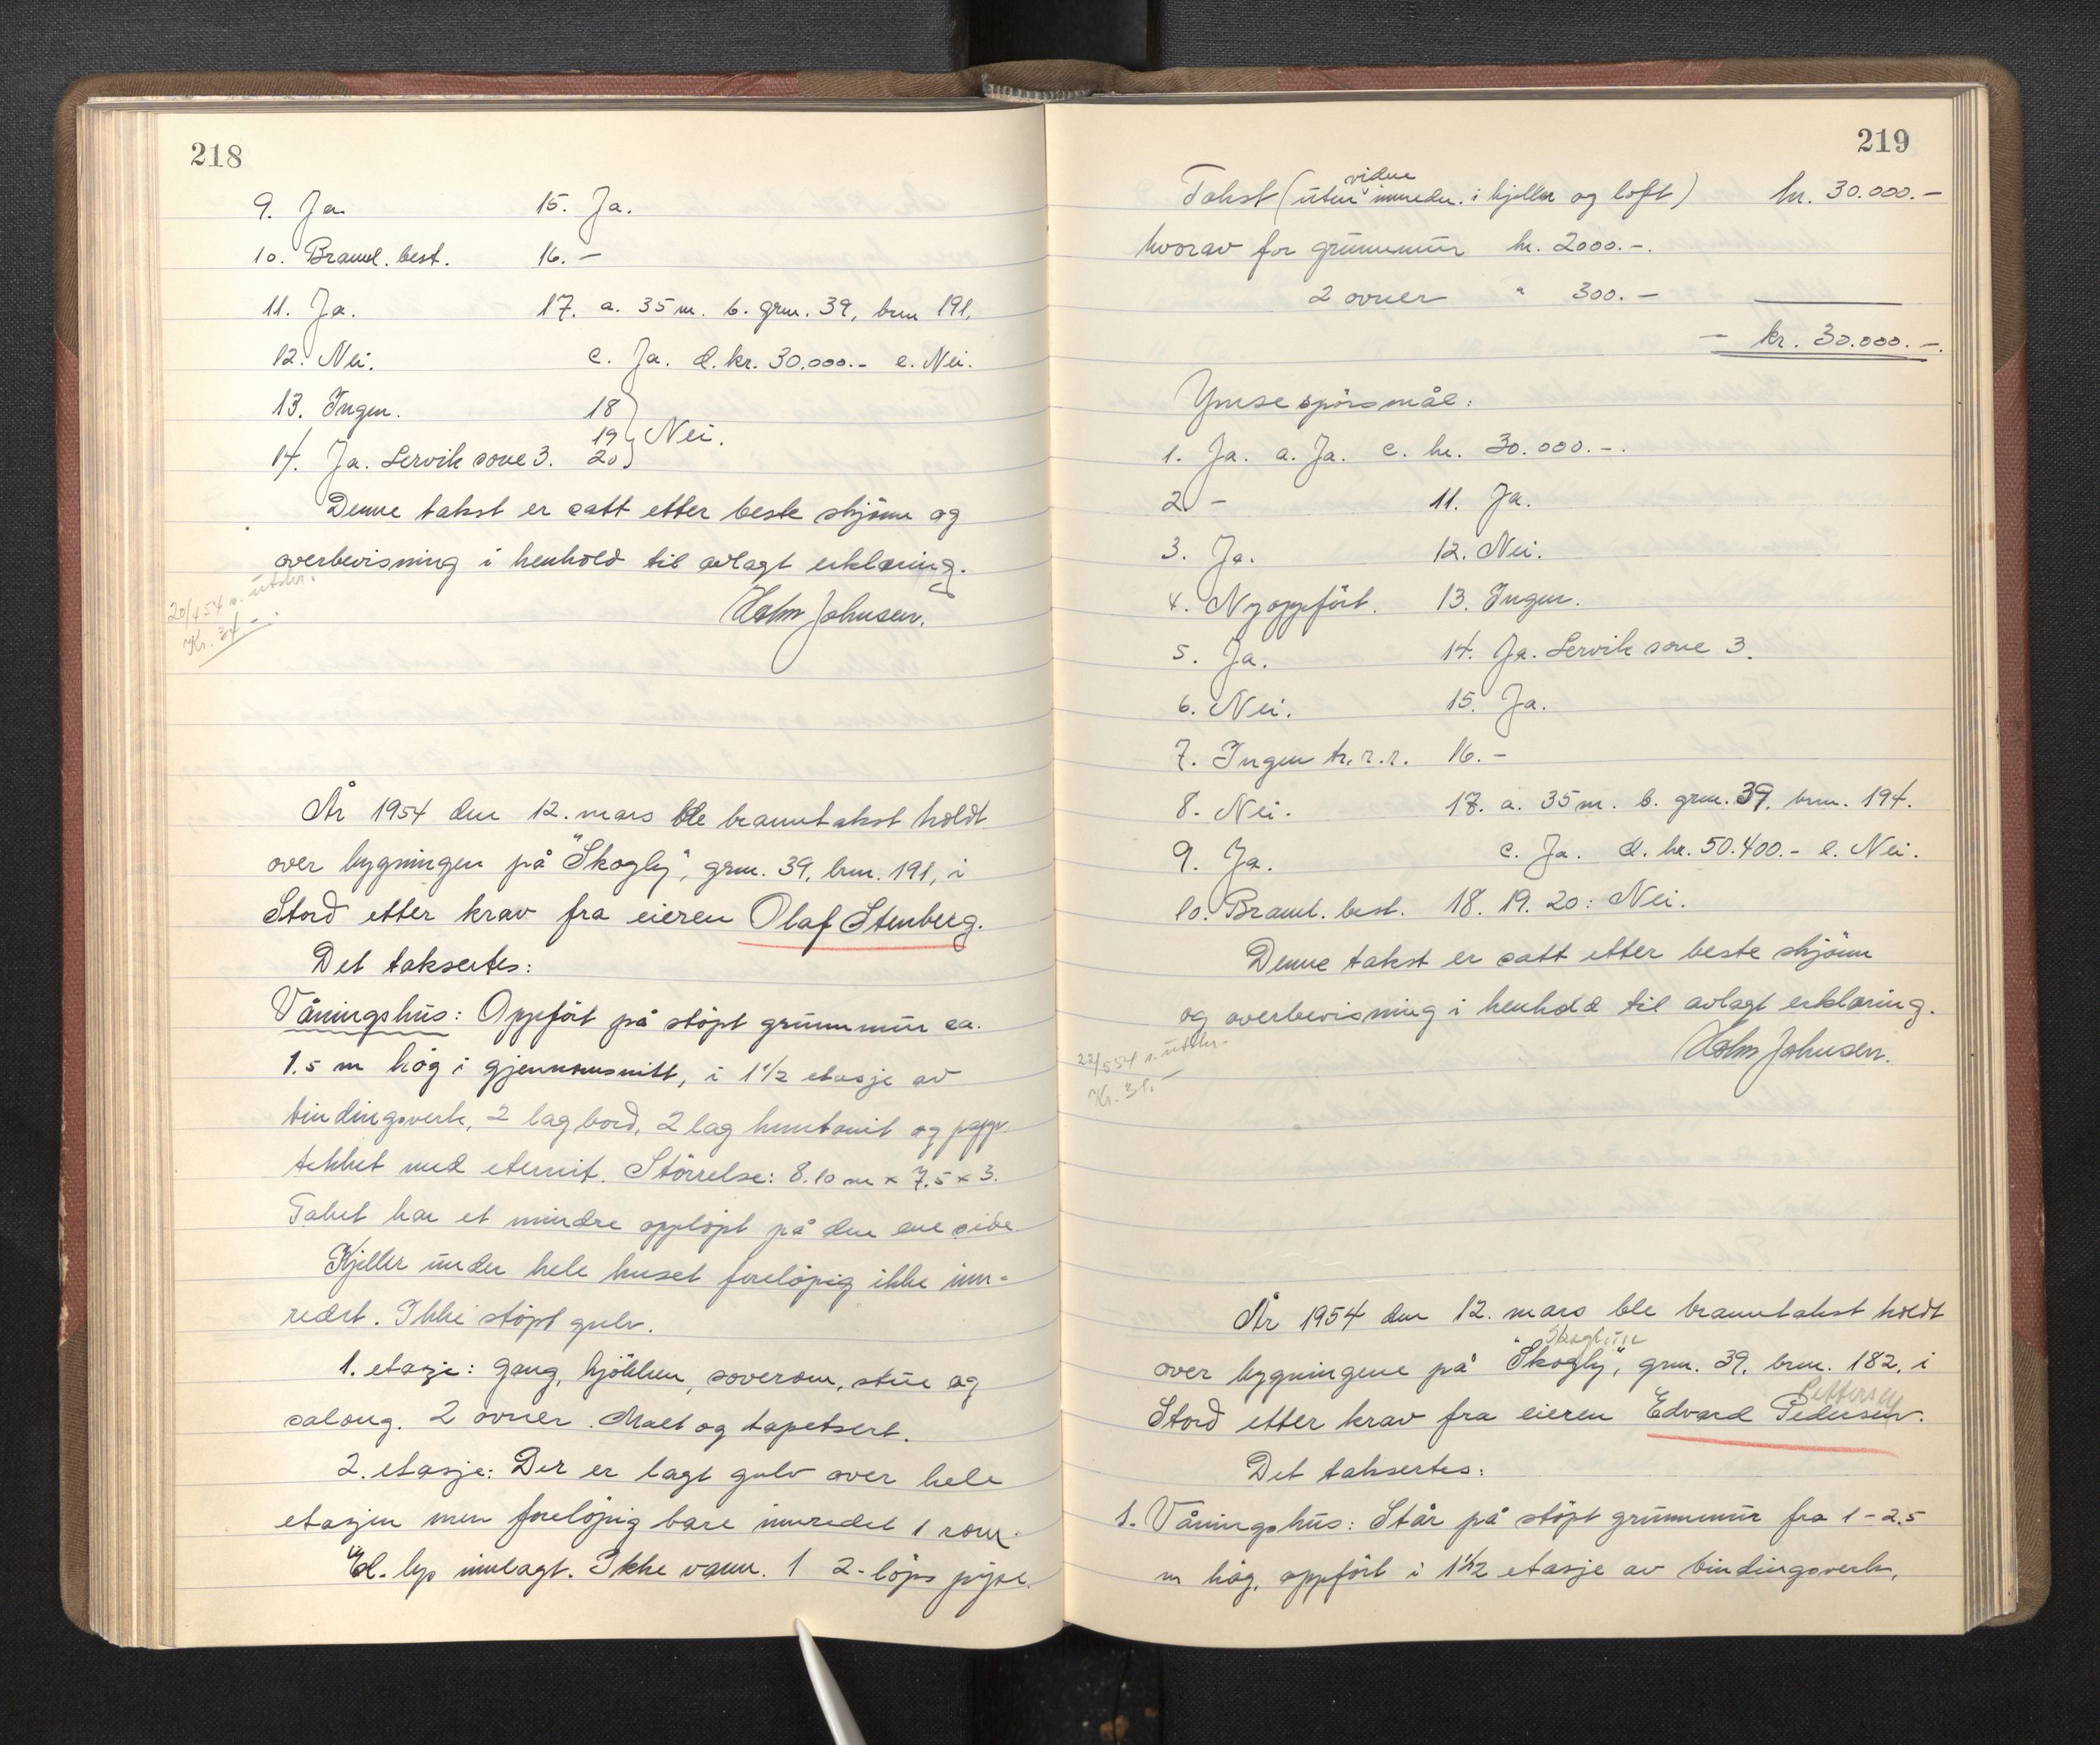 218
9. Ja
15. Ja.
10. Brannl. best.
16. –
11. Ja.
17. a. 35 m. b. grnr. 39, bnr 191,
12. Nei.
c. Ja. d. kr. 30.000.- e. Nei.
13. Ingen.
18
19 Nei.
14. Ja. Lervik sone 3.
20
Denne takst er satt etter beste skjönn og
overbevisning i henhold til avlagt erklæring.
20/4 54 s. utskr.
Kr. 34.-
Holm Johnsen.
År 1954 den 12. mars ble branntakst holdt
over bygningen på "Skogly", grnr. 39, bnr. 191, i
Stord etter krav fra eieren Olaf Stenberg.
Det taksertes:
Våningshus: Oppfört på stöpt grunnmur ca.
1.5 m hög i gjennomsnitt, i 1½ etasje av
bindingsverk, 2 lag bord, 2 lag huntonit og papp
tekket med eternit. Störrelse: 8.10 m x 7.5 x 3.
Taket har et mindre opplöpt på den ene side.
Kjeller under hele huset forelöpig ikke inn-
redet. Ikke stöpt gulv.
1. etasje: gang, kjökken, soverom, stue og
salong. 2 ovner. Malt og tapetsert.
2. etasje: Der er lagt gulv over hele
etasjen men forelöpig bare innredet 1 rom.
El. lys innlagt. Ikke vann. 1 2-löps pipe.
219
Takst (uten videre innredn. i kjeller og loft) kr. 30.000.-
hvorav for grunnmur kr. 2000.-.
2 ovner " 300.-
- kr. 30.000.-.
Ymse spörsmål:
1. Ja. a. Ja. c. kr. 30.000.-.
2. -
11. Ja.
3. Ja.
12. Nei.
4. Nyoppfört.
13. Ingen.
5. Ja.
14. Ja. Lervik sone 3.
6. Nei.
15. Ja.
7. Ingen tr. r. r.
16. -
8. Nei.
17. a. 35 m. b. grnr. 39. bnr. 194.
9. Ja.
c. Ja. d. kr. 50.400.- e. Nei.
10. Brannl. best.
18. 19. 20: Nei.
Denne takst er satt etter beste skjönn
og overbevisning i henhold til avlagt erklæring.
22/5 54 s. utskr.
Kr. 31.-
Holm Johnsen.
År 1954 den 12. mars ble branntakst holdt
over bygningene på "Skogly", grnr. 39, bnr. 182, i
Pettersen
Stord etter krav fra eieren Edvard Pedersen.
Det taksertes:
1. Våningshus: Står på stöpt grunnmur fra 1-2.5
m hög, oppfört i 1½ etasje av bindingsverk,